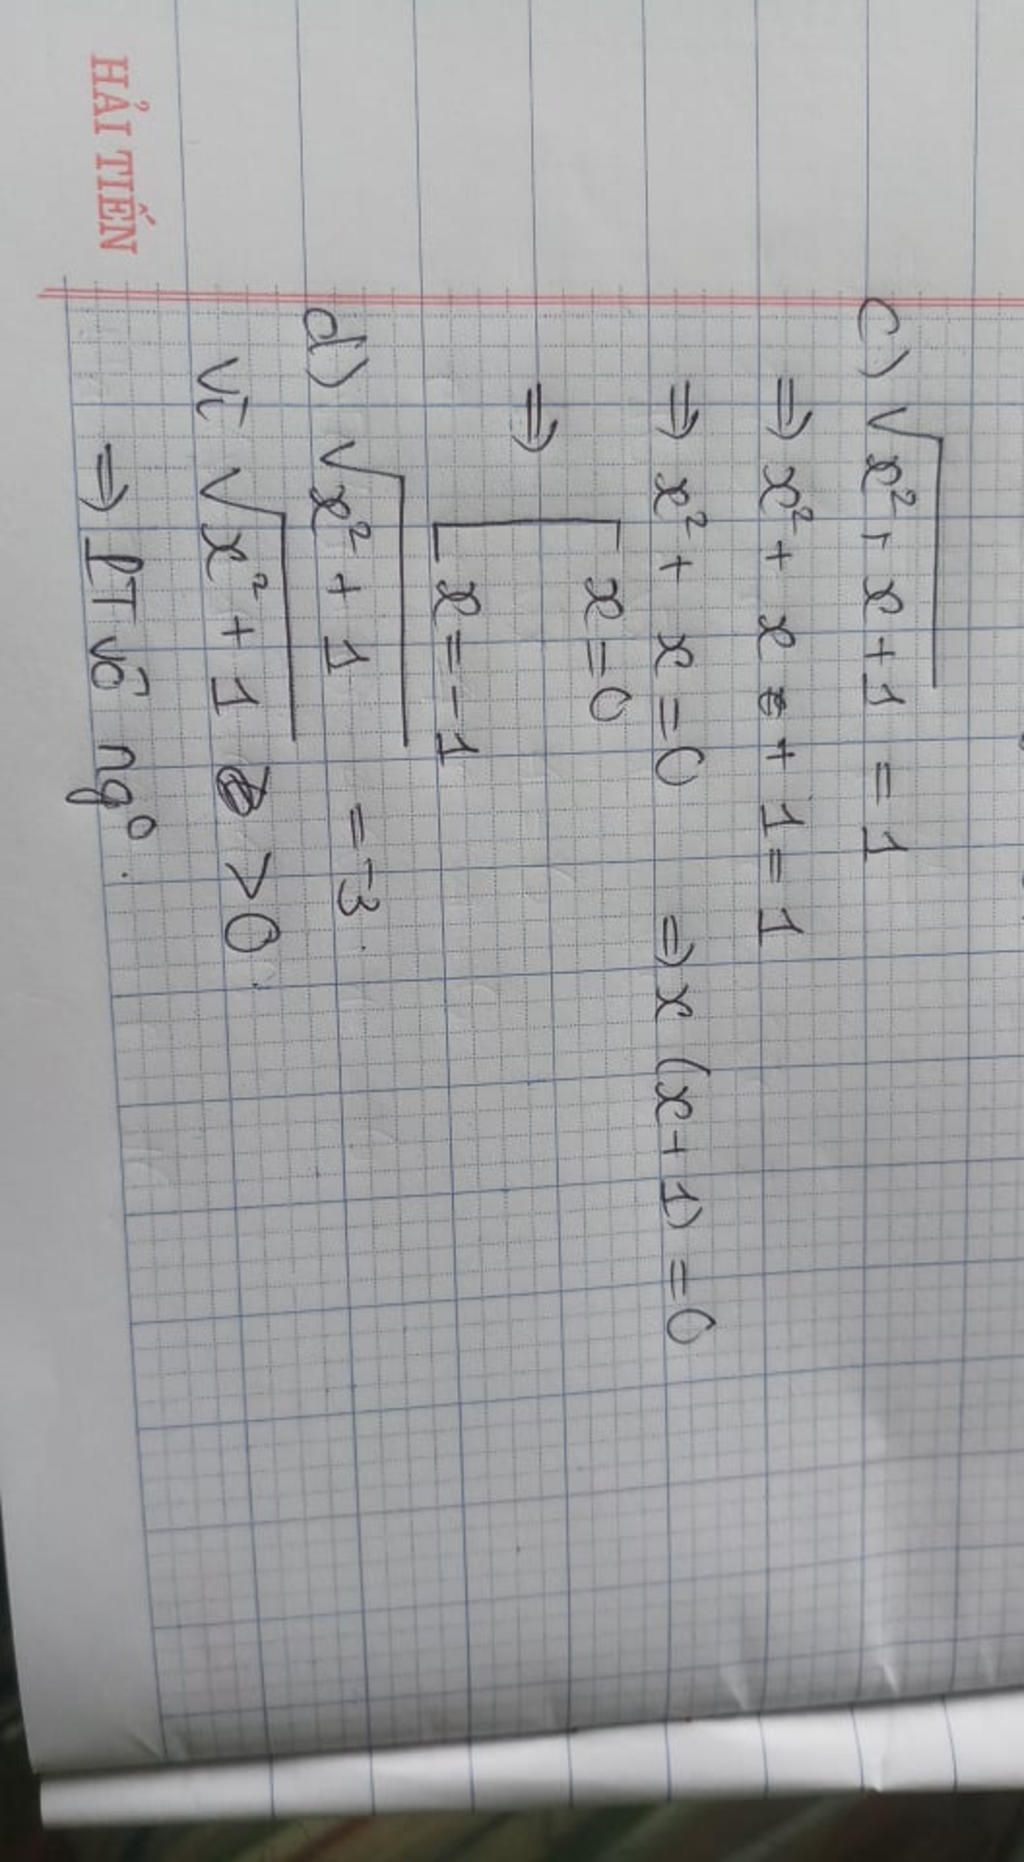 HẢI TIẾN
c) √x²+x+1 = 1
⇒ x² + x + 1 = 1
⇒ x² + x = 0 ⇒ x (x+1) = 0
⇒ [ x = 0
x = -1
d) √x² + 1 = -3.
Vì √x² + 1 > 0.
⇒ PT vô ngº.